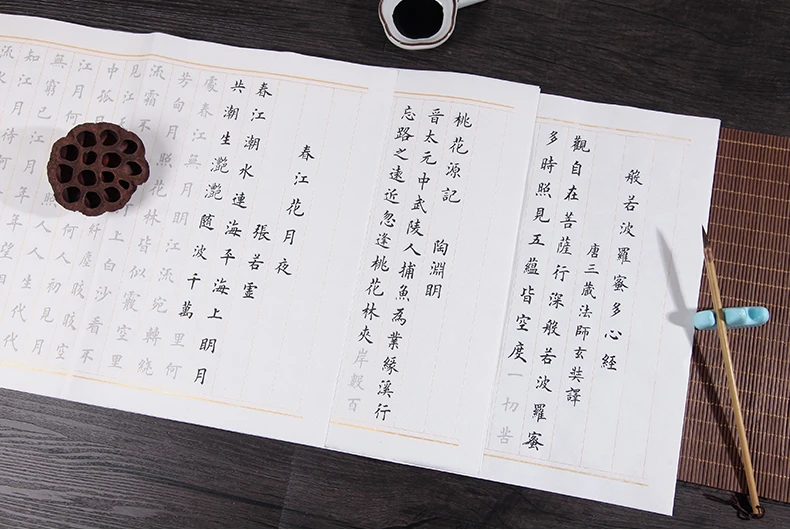 般若波羅蜜多心經
唐三藏法師玄奘譯
觀自在菩薩行深般若波羅蜜
多時照見五蘊皆空度一切苦
桃花源記
陶淵明
晉太元中武陵人捕魚為業緣溪行
忘路之遠近忽逢桃花林夾岸數百
春江花月夜
張若虛
春江潮水連海平海上明月
共潮生灩灩随波千萬里何
處春江無月明江流宛轉繞
芳甸月照花林皆似霰空里
流霜不上白沙看不
見江纖塵皎空
中孤何人初見月
江月何年人人生代
無窮已江月年望
知江月待何
流水